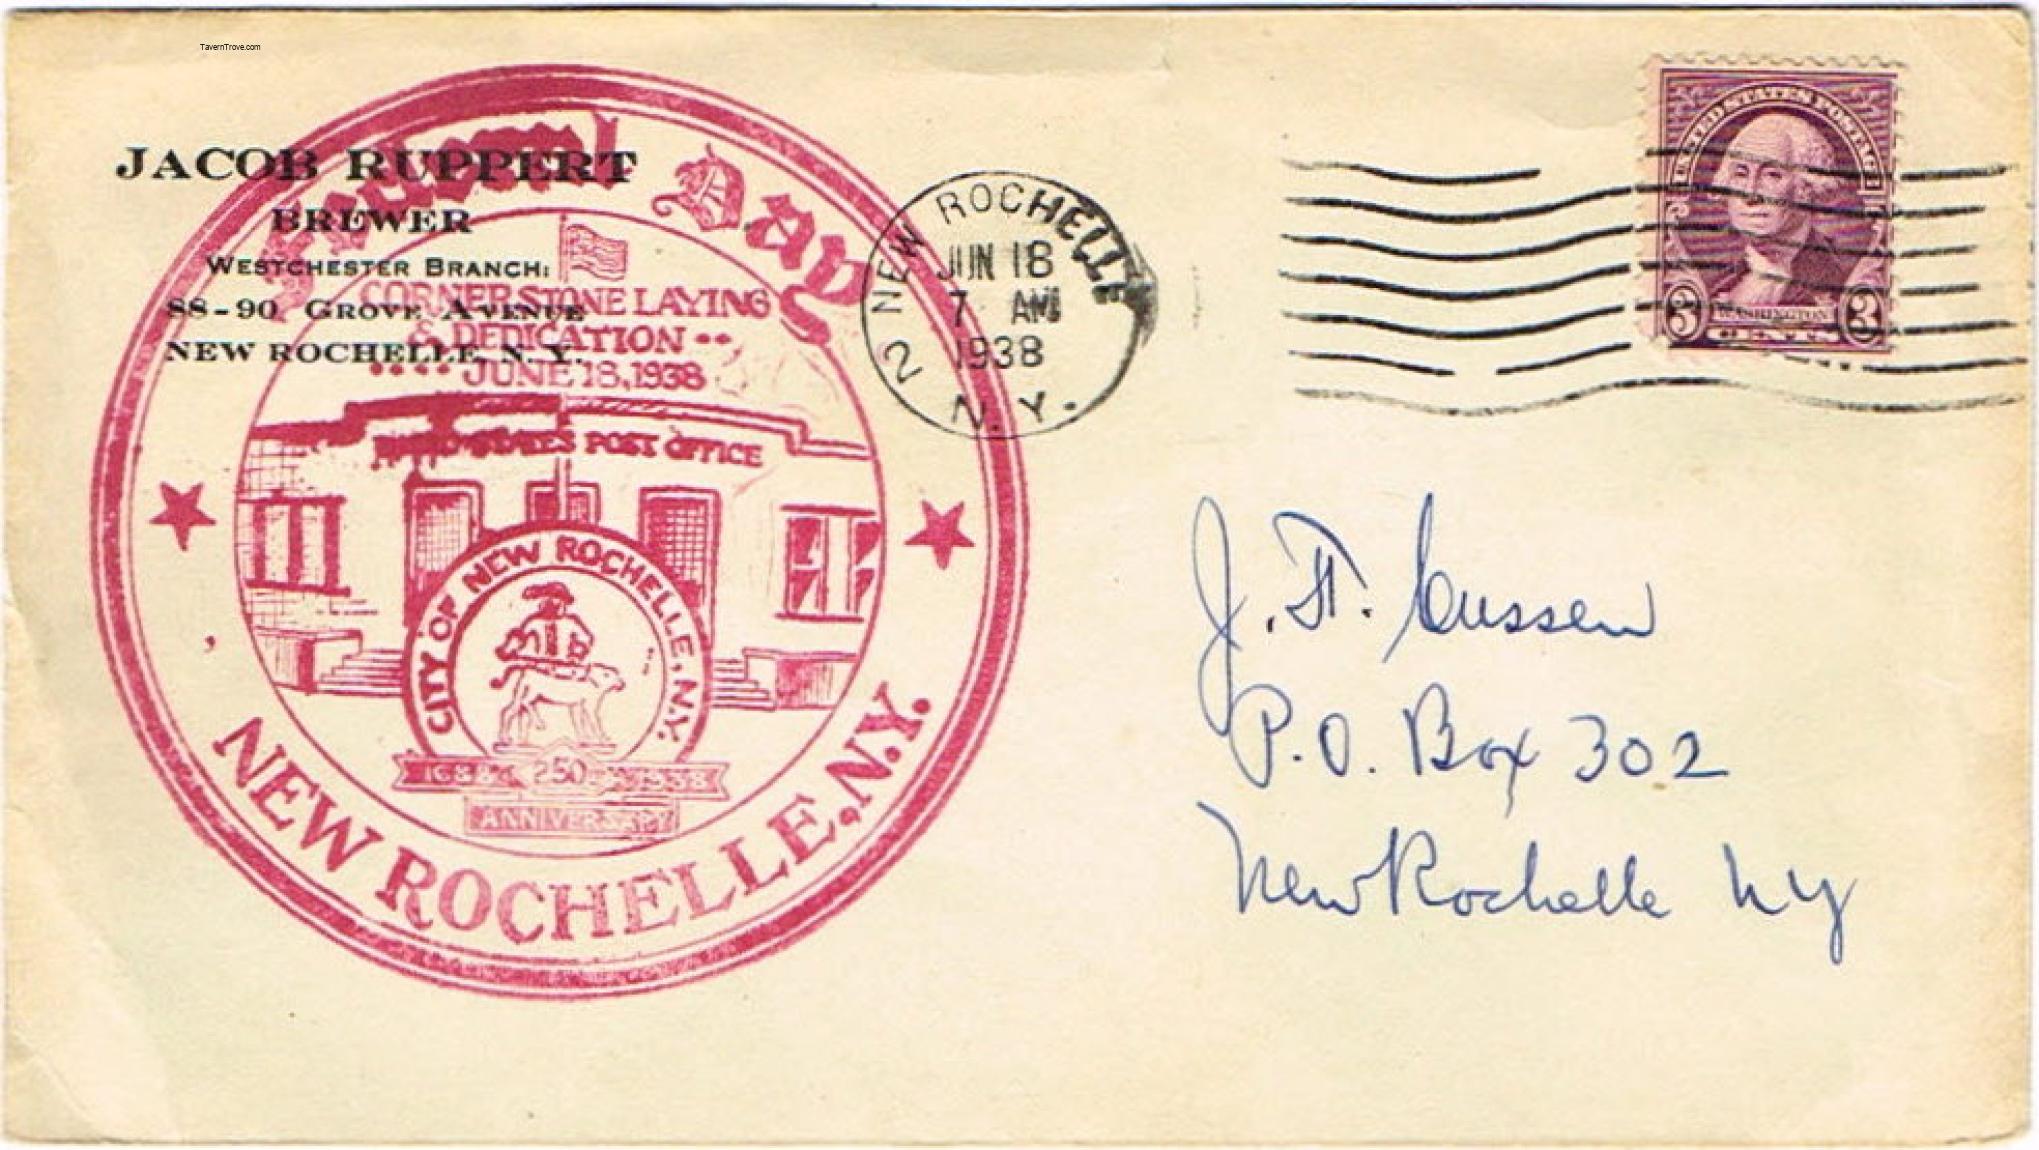 TavernTrove.com
JACOB RUPPERT
BREWER
WESTCHESTER BRANCH:
88-90 GROVE AVENUE
NEW ROCHELLE, N. Y.
Day
CORNERSTONE LAYING
& DEDICATION
JUNE 18, 1938
UNITED STATES POST OFFICE
CITY OF NEW ROCHELLE, N.Y.
1688 250 1938
ANNIVERSARY
NEW ROCHELLE, N.Y.
NEW ROCHELLE 2
JUN 18
7 AM
1938
N.Y.
UNITED STATES POSTAGE
3 WASHINGTON 3
CENTS
J. H. Cussen
P.O. Box 302
New Rochelle NY